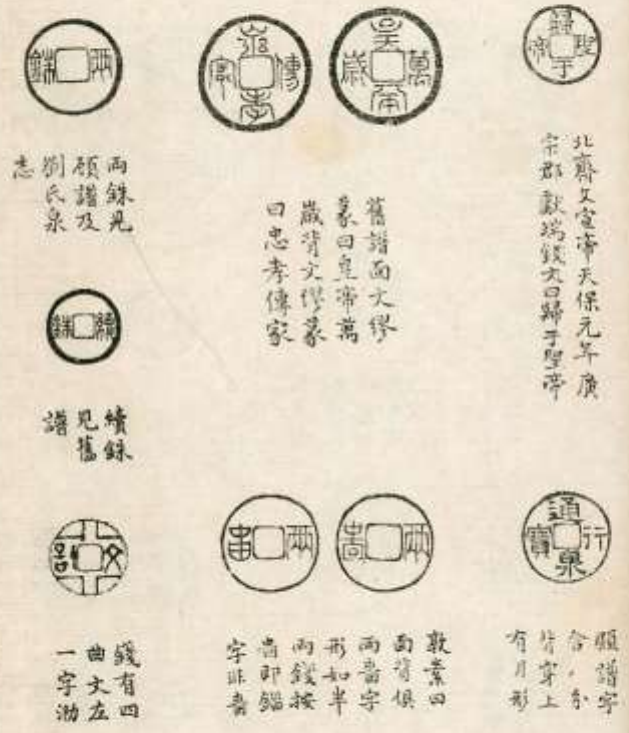 歸于聖帝
北齊文宣帝天保元年廣
宗郡獻瑞錢文曰歸于聖帝
皇帝萬歲
忠孝傳家
舊譜面文繆
篆曰皇帝萬
歲背文繆篆
曰忠孝傳家
兩銖
兩銖見
顧譜及
劉氏泉
志
續銖
續銖
見舊
譜
通行泉寶
顧譜字
含八分
背穿上
有月形
兩
兩
敦素曰
面背俱
兩畨字
形如半
兩錢按
甾即錙
字非畨
文
錢有四
曲文左
一字泐